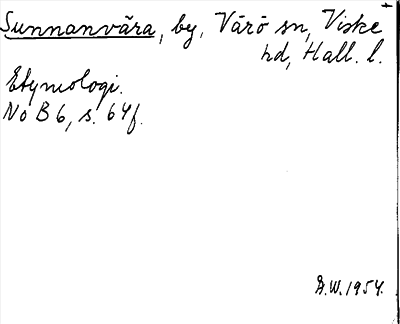 Sunnanvära, by, Värö sn, Viske
hd, Hall. l.
Etymologi.
NoB 6, s. 64f.
G.W. 1954.